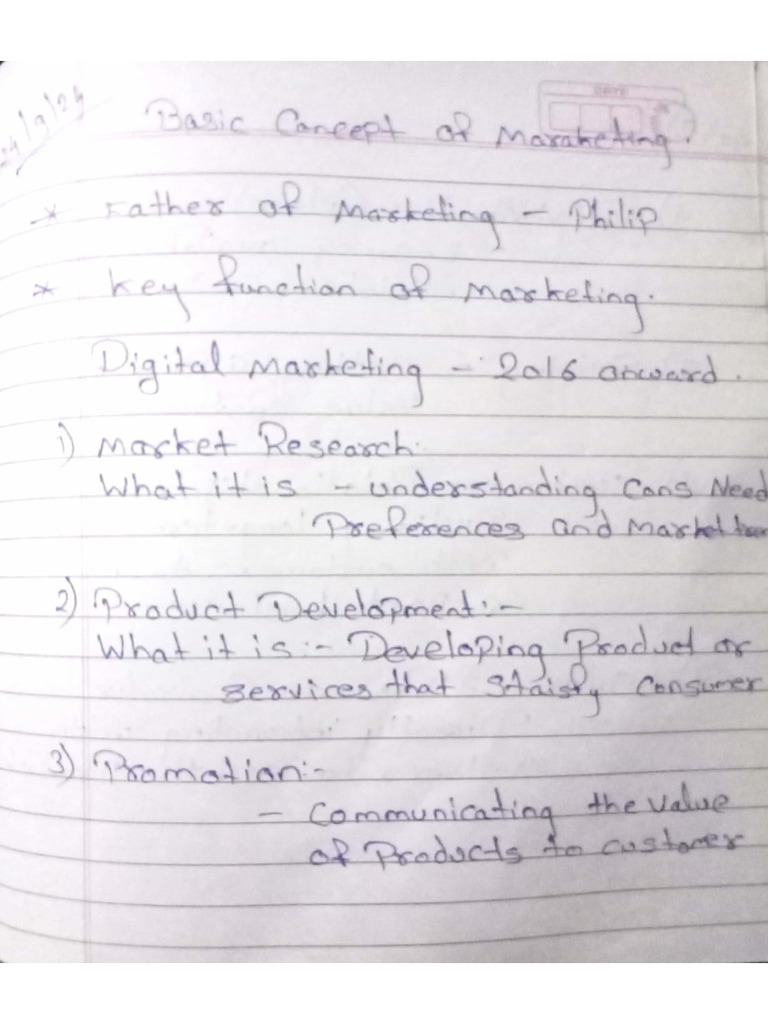 24/9/24
DATE
Basic Concept of Maraketing.
* Father of Marketing - Philip
* Key function of Marketing.
Digital Marketing - 2016 onward.
1) Market Research.
What it is - understanding Cons Need
Preferences and Market
2) Product Development:-
What it is:- Developing Product or
services that Staisfy Consumer
3) Promotion:-
- Communicating the value
of Products to customer